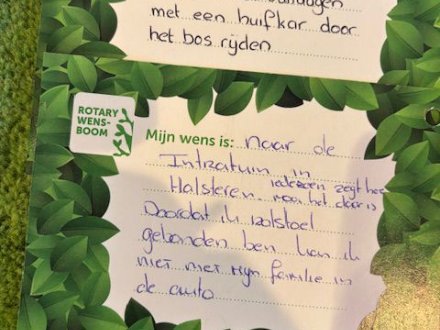 met een huifkar door
het bos rijden
ROTARY
WENS-
BOOM
Mijn wens is: naar de
Intratuin in
Halsteren iedereen zegt hoe
het daar is
Doordat ik rolstoel
gebonden ben kan ik
niet met mijn familie in
de auto